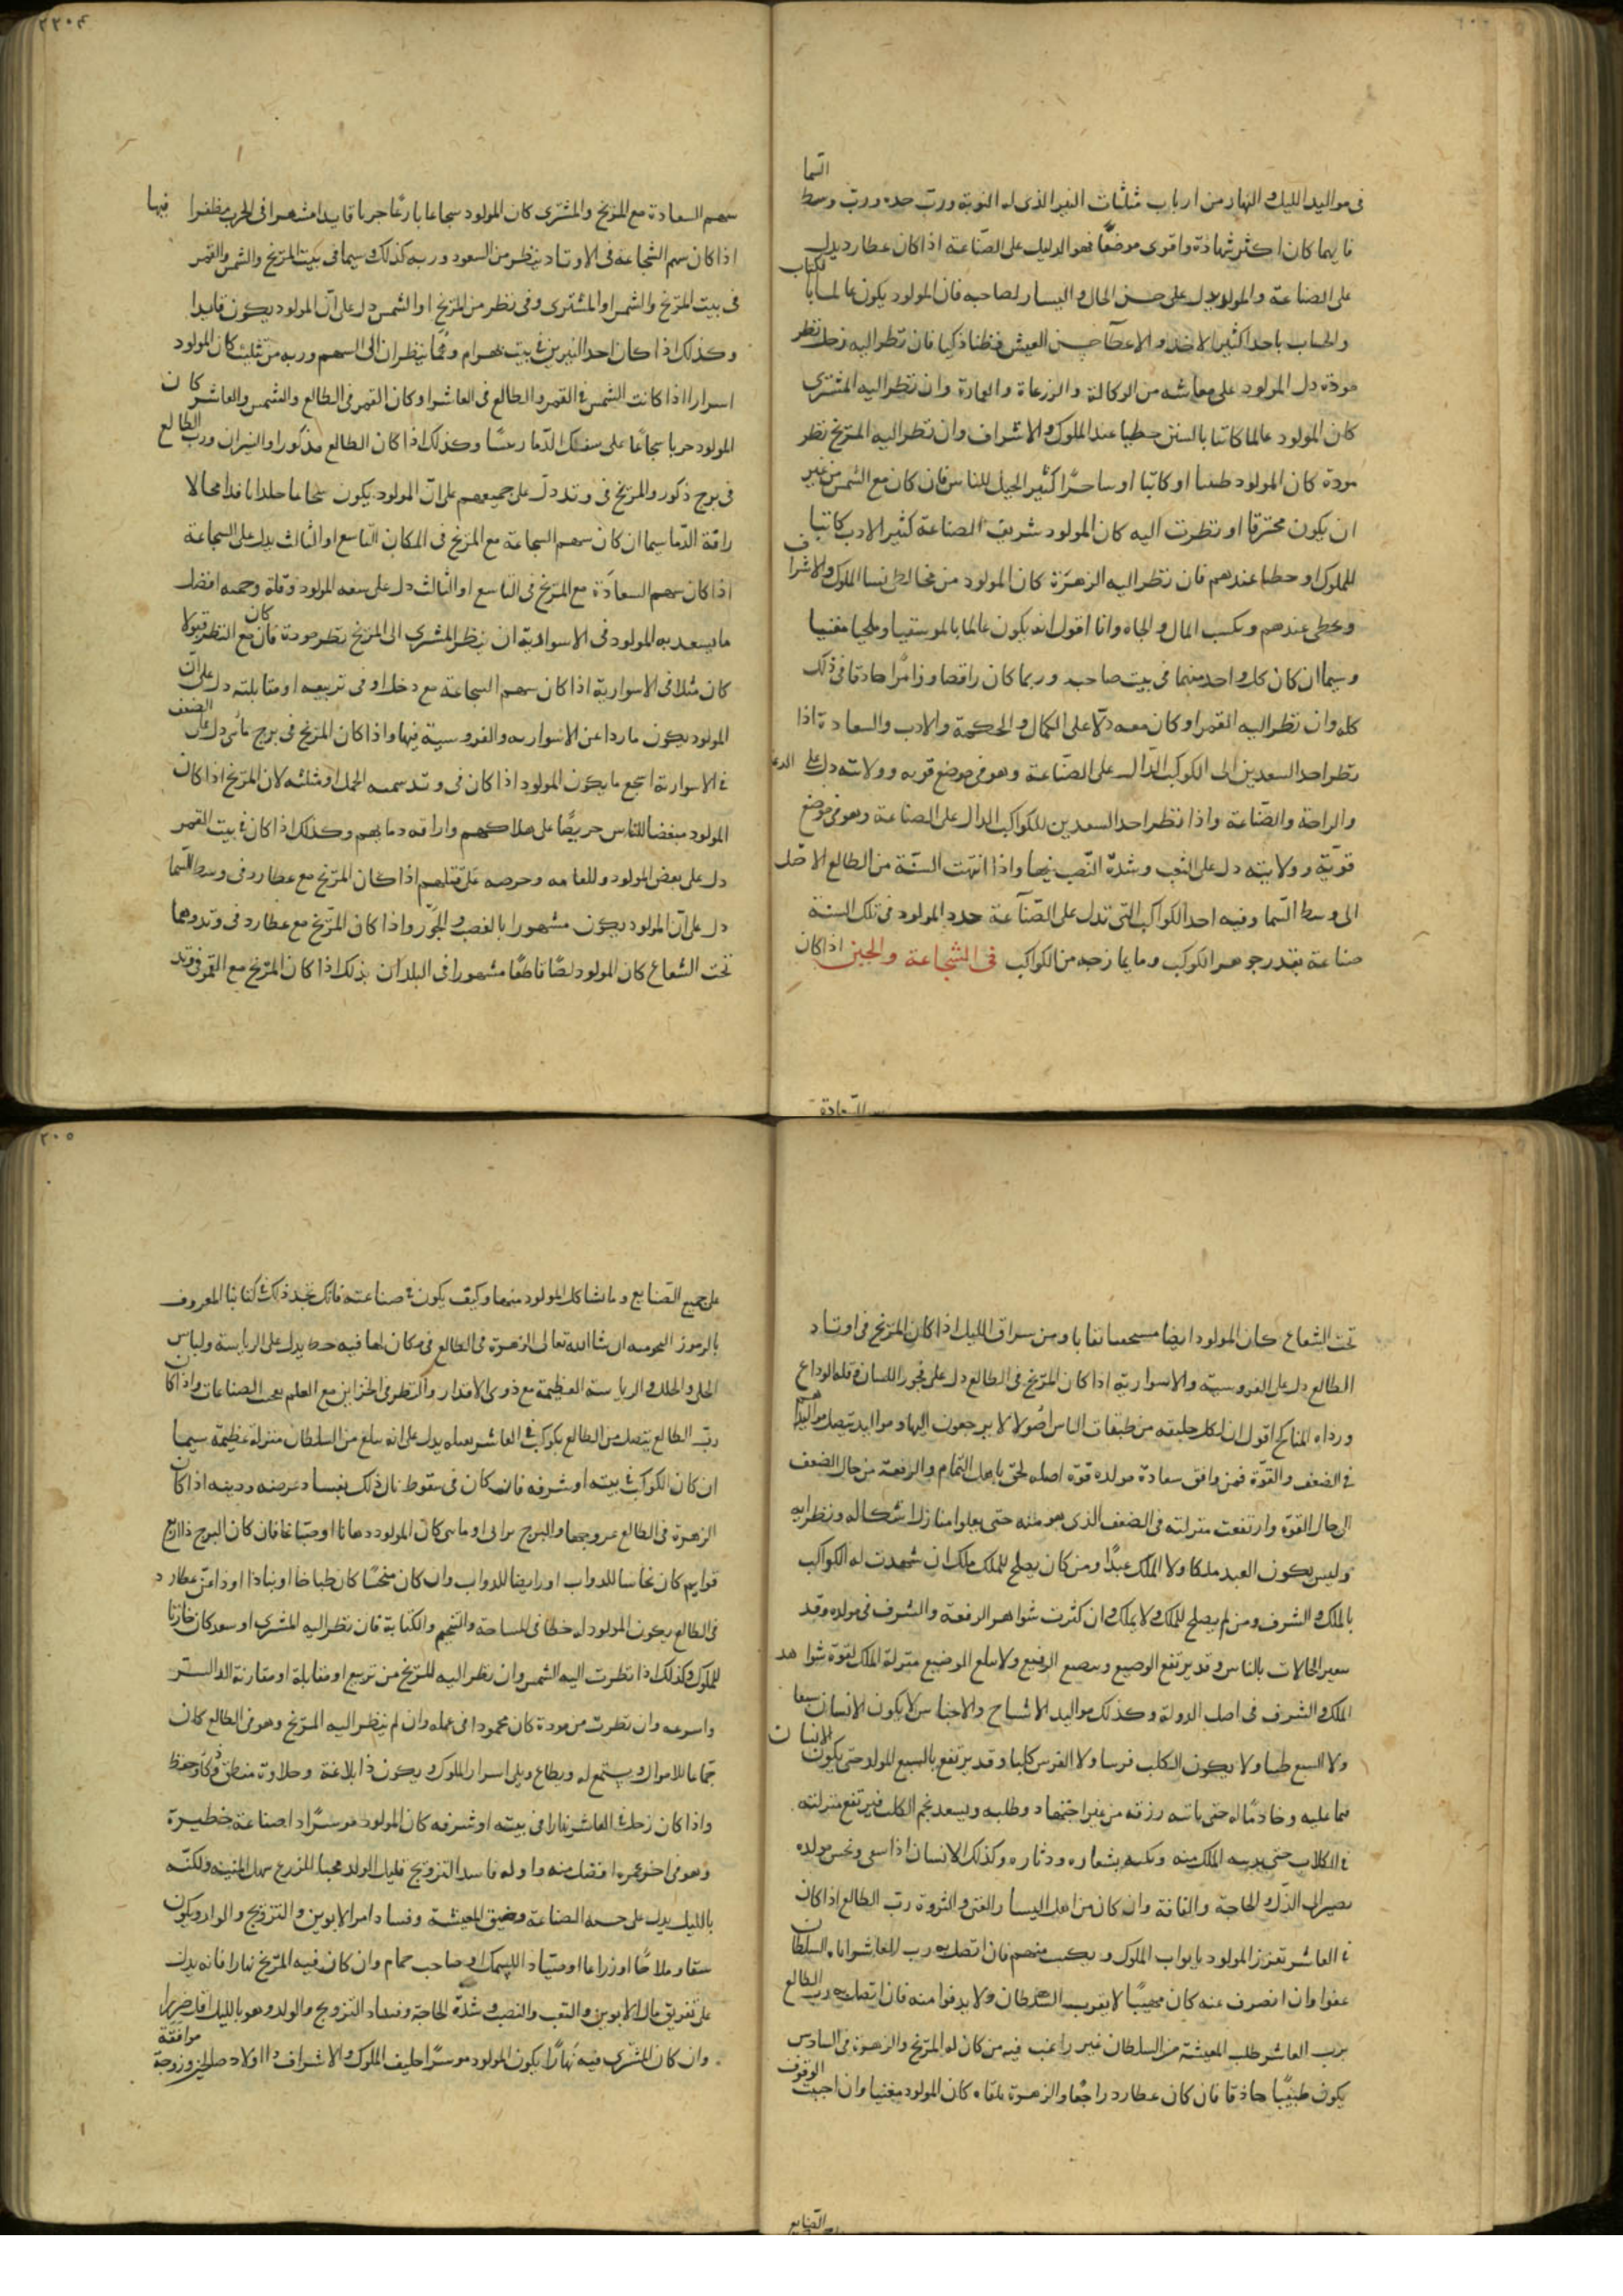 في مواليد الليل والنهار من ارباب مثلثات النير الذي له النوبة ورب حده ورب وسط السما
فايهما كان اكثر شهادة واقوى موضعا فهو الدليل على الصناعة اذا كان عطارد يدل
على الصناعة والمولود يدل على حسن الحال واليسار لصاحبه فان المولود يكون عالما بالكتاب
والحساب كثير الاخذ والاعطا حسن العيش فطنا ذكيا فان نظر اليه زحل نظر
مودة دل المولود على معاشه من الوكالة والزرعاة والعمارة وان نظر اليه المشتري
كان المولود عالما كاتبا بالسنن خطيبا عند الملوك والاشراف وان نظر اليه المريخ نظر
مودة كان المولود طبيبا او كاتبا او ساحرا كثير الحيل للناس فان كان مع الشمس من غير
ان يكون محترقا او نظرت اليه كان المولود شريف الصناعة كثير الادب كاتبا
للملوك او خطيبا عندهم فان نظر اليه الزهرة كان المولود من مخالطي نسا الملوك والاشراف
ويحظى عندهم ويكسب المال والجاه وانا اقول انه يكون عالما بالموسيقيا وملحيا مغنيا
وسيما ان كان كل واحد منهما في بيت صاحبه وربما كان راقصا وزامرا حاذقا في ذلك
كله وان نظر اليه القمر او كان معه دلا على الكمال والحكمة والادب والسعادة اذا
نظر احد السعدين الى الكوكب الدال على الصناعة وهو في موضع قوته وولايته دل على
والراحة والصناعة واذا نظر احد السعدين للكواكب الدال على الصناعة وهو في موضع
قوته وولايته دل على التعب وشدة النصب فيها واذا انتهت السنة من الطالع الاصل
الى وسط السما وفيه احد الكواكب التي تدل على الصناعة حدد المولود في تلك السنة
صناعة بقدر جوهر الكوكب وما يمازجه من الكواكب في الشجاعة والجبن اذا كان
سهم السعادة مع المريخ والمشتري كان المولود شجاعا بارعا جريا قايدا مشهرا في الحرب مظفرا فيها
اذا كان سهم الشجاعة في الاوتاد ينظر من السعود وربه كذلك سيما في بيت المريخ والشمس والقمر
في بيت المريخ والشمس او المشتري وفي نظر من المريخ او الشمس دل على ان المولود يكون قايدا
وكذلك اذا كان احد النيرين في بيت بهرام وهما ينظران الى السهم وربه من تثليث كان المولود
اسوارا اذا كانت الشمس في القمر والطالع في العاشر او كان القمر في الطالع والشمس والعاشر كان
المولود حربا شجاعا على سفك الدما وكذلك اذا كان الطالع مذكورا والنيران ورب الطالع
في برج ذكور والمريخ في وتد دل على جميعهم على ان المولود يكون شجاعا جلدا مقداما محالا
راقة الدما سيما ان كان سهم الشجاعة مع المريخ في المكان التاسع او الثالث يدل على الشجاعة
اذا كان سهم السعادة مع المريخ في التاسع او الثالث دل على سعه المولود وقلة افضل
ما يسعد به المولود في الاسوارية ان ينظر المشتري الى المريخ نظر مودة فان كان مع النظر قبولا
كان مثلا في الاسوارية اذا كان سهم الشجاعة مع زحل او في تربيعه او مقابلته دل على ان
المولود يكون ماردا عن الاسواريه والفروسية فيها واذا كان المريخ في برج مائي دل على الضعف
في الاسوارية اشجع ما يكون المولود اذا كان في وتد سيمه الحمل او مثلثه لان المريخ اذا كان
المولود مبغضا للناس حريصا على هلاكهم واراقه دمايهم وكذلك اذا كان في بيت القمر
دل على بعض المولود وللعامه وحرصه على قتلهم اذا كان المريخ مع عطارد في وسط السما
دل على ان المولود يكون مشهورا بالغصب والجور واذا كان المريخ مع عطارد في وتد وهما
تحت الشعاع كان المولود لصا قاطعا مشهورا في البلدان بذلك اذا كان المريخ مع القمر في وتد
٢٠٥
تحت الشعاع كان المولود ايضا نقابا ومن سراق الليل اذا كان المريخ في اوتاد
الطالع دل على الفروسية والاسوارية اذا كان المريخ في الطالع دل على فجور اللسان وقله الوداع
ورداه المناكح اقول ان لكل طبقه من طبقات الناس اصولا لا يرجعون اليها ومواليد يتصل
في الضعف والقوة فمن وافق سعادة مولده قوة اصله لحق باهل التمام والرفعة من حال الضعف
الى حال القوة وارتفعت منزلته في الضعف الذي هو منه حتى يعلوا منازل اشكاله ونظرايه
وليس يكون العبد ملكا ولا الملك عبدا ومن كان يصلح للملك ملك ان شهدت له الكواكب
بالملك والشرف ومن لم يصلح للملك لا يملك وان كثرت شواهد الرفعة والشرف في مولده وقد
الحالات بالناس وقد يرتفع الوضيع ويتضع الرفيع ولا يبلغ الوضيع منزلة الملك لقوة شواهد
الملك والشرف في اصل الدولة وكذلك مواليد الاشباح والاجناس لا يكون الانسان سبعا
ولا السبع ظبيا ولا يكون الكلب فرسا ولا الفرس كلبا وقد يرتفع بالسبع المولد حتى يكون الانسان
قيما عليه وخادما له حتى ياتيه رزقه من غير اجتهاد وطلبه ويسعد نجم الكلب فيرتفع منزلته
في الكلاب حتى الملك منه بشعاره ودثاره وكذلك الانسان اذا سعى ونحس مولده
يصير الى الذل والحاجة والفاقة وان كان من اهل اليسار والغنى والثروة رب الطالع اذا كان
في العاشر تعزز المولود بابواب الملوك ويكسب منهم فان اتصل به رب العاشر اتاه السلطان
عفوا وان انصرف عنه كان مهيبا لا يقرب السلطان ولا يدنوا منه فان اتصل به رب الطالع
برب العاشر طلب المعيشة من السلطان غير راغب فيه من كان له المريخ والزهرة في السادس
يكون طبيبا حاذقا فان كان عطارد راجعا والزهرة تلقاه كان المولود مغنيا وان احببت الوقوف
على جميع الصنايع وما شاكل المولود منها وكيف يكون في صناعته فانك تجد ذلك في كتابنا المعروف
بالرموز النجوميه ان شا الله تعالى الزهرة في الطالع في مكان لها فيه حظ يدل على الرياسة ولباس
الحلى والحلل والرياسة العظيمة مع ذوي الاقدار والنظر في الخزاين مع العلم بعجب الصناعات واذا كان
رب الطالع يتصل من الطالع بكوكب في العاشر يدل على انه يبلغ من السلطان منزلة عظيمة سيما
ان كان الكوكب في بيته او شرفه فان كان في سقوط نال ذلك بفساد عرضه ودينه اذا كان
الزهرة في الطالع والبرج او مائي كان المولود دهانا او صباغا فان كان البرج ذا اربع
قوايم كان نخاسا للدواب او رايضا للدواب وان كان منحسا كان طباخا او نباذا عطارد
في الطالع يكون المولود له حظا في المساحة والتنجيم والكتابة فان نظر اليه المشتري او سعد كان خازنا
للملوك وكذلك اذا نظرت اليه الشمس وان نظر اليه المريخ من تربيع او مقابلة او مقارنة
وان نظرت من مودة كان محمودا في عمله وان لم ينظر اليه المريخ وهو في الطالع كان
جماعا للاموال ويستمع له ويطاع ويلي اسرار الملوك ويكون ذا بلاغة وحلاوة منطق وذكاء وحفظ
واذا كان زحل في العاشر نهارا في بيته او شرفه كان المولود موسرا ذا صناعة خطيرة
وهو في اخر عمره افضل منه في اوله فاسد التزويج قليل الولد محبا للزرع سهل المنيه ولكنه
بالليل يدل على خسه الصناعة وضيق المعيشة وفساد امر الابوين والتزويج والولد ويكون
سقا وملاحا او زراعا او صيادا للسمك او صاحب حمام وان كان فيه المريخ نهارا فانه يدل
على تفريق مال الابوين والتعب والنصب وشدة الحاجة وفساد التزويج والولد وهو بالليل اقل ضررا
وان كان المشتري فيه نهارا يكون المولود موسرا حليف الملوك والاشراف ذا اولاد صلحين وزوجة موافقة
الصنايع